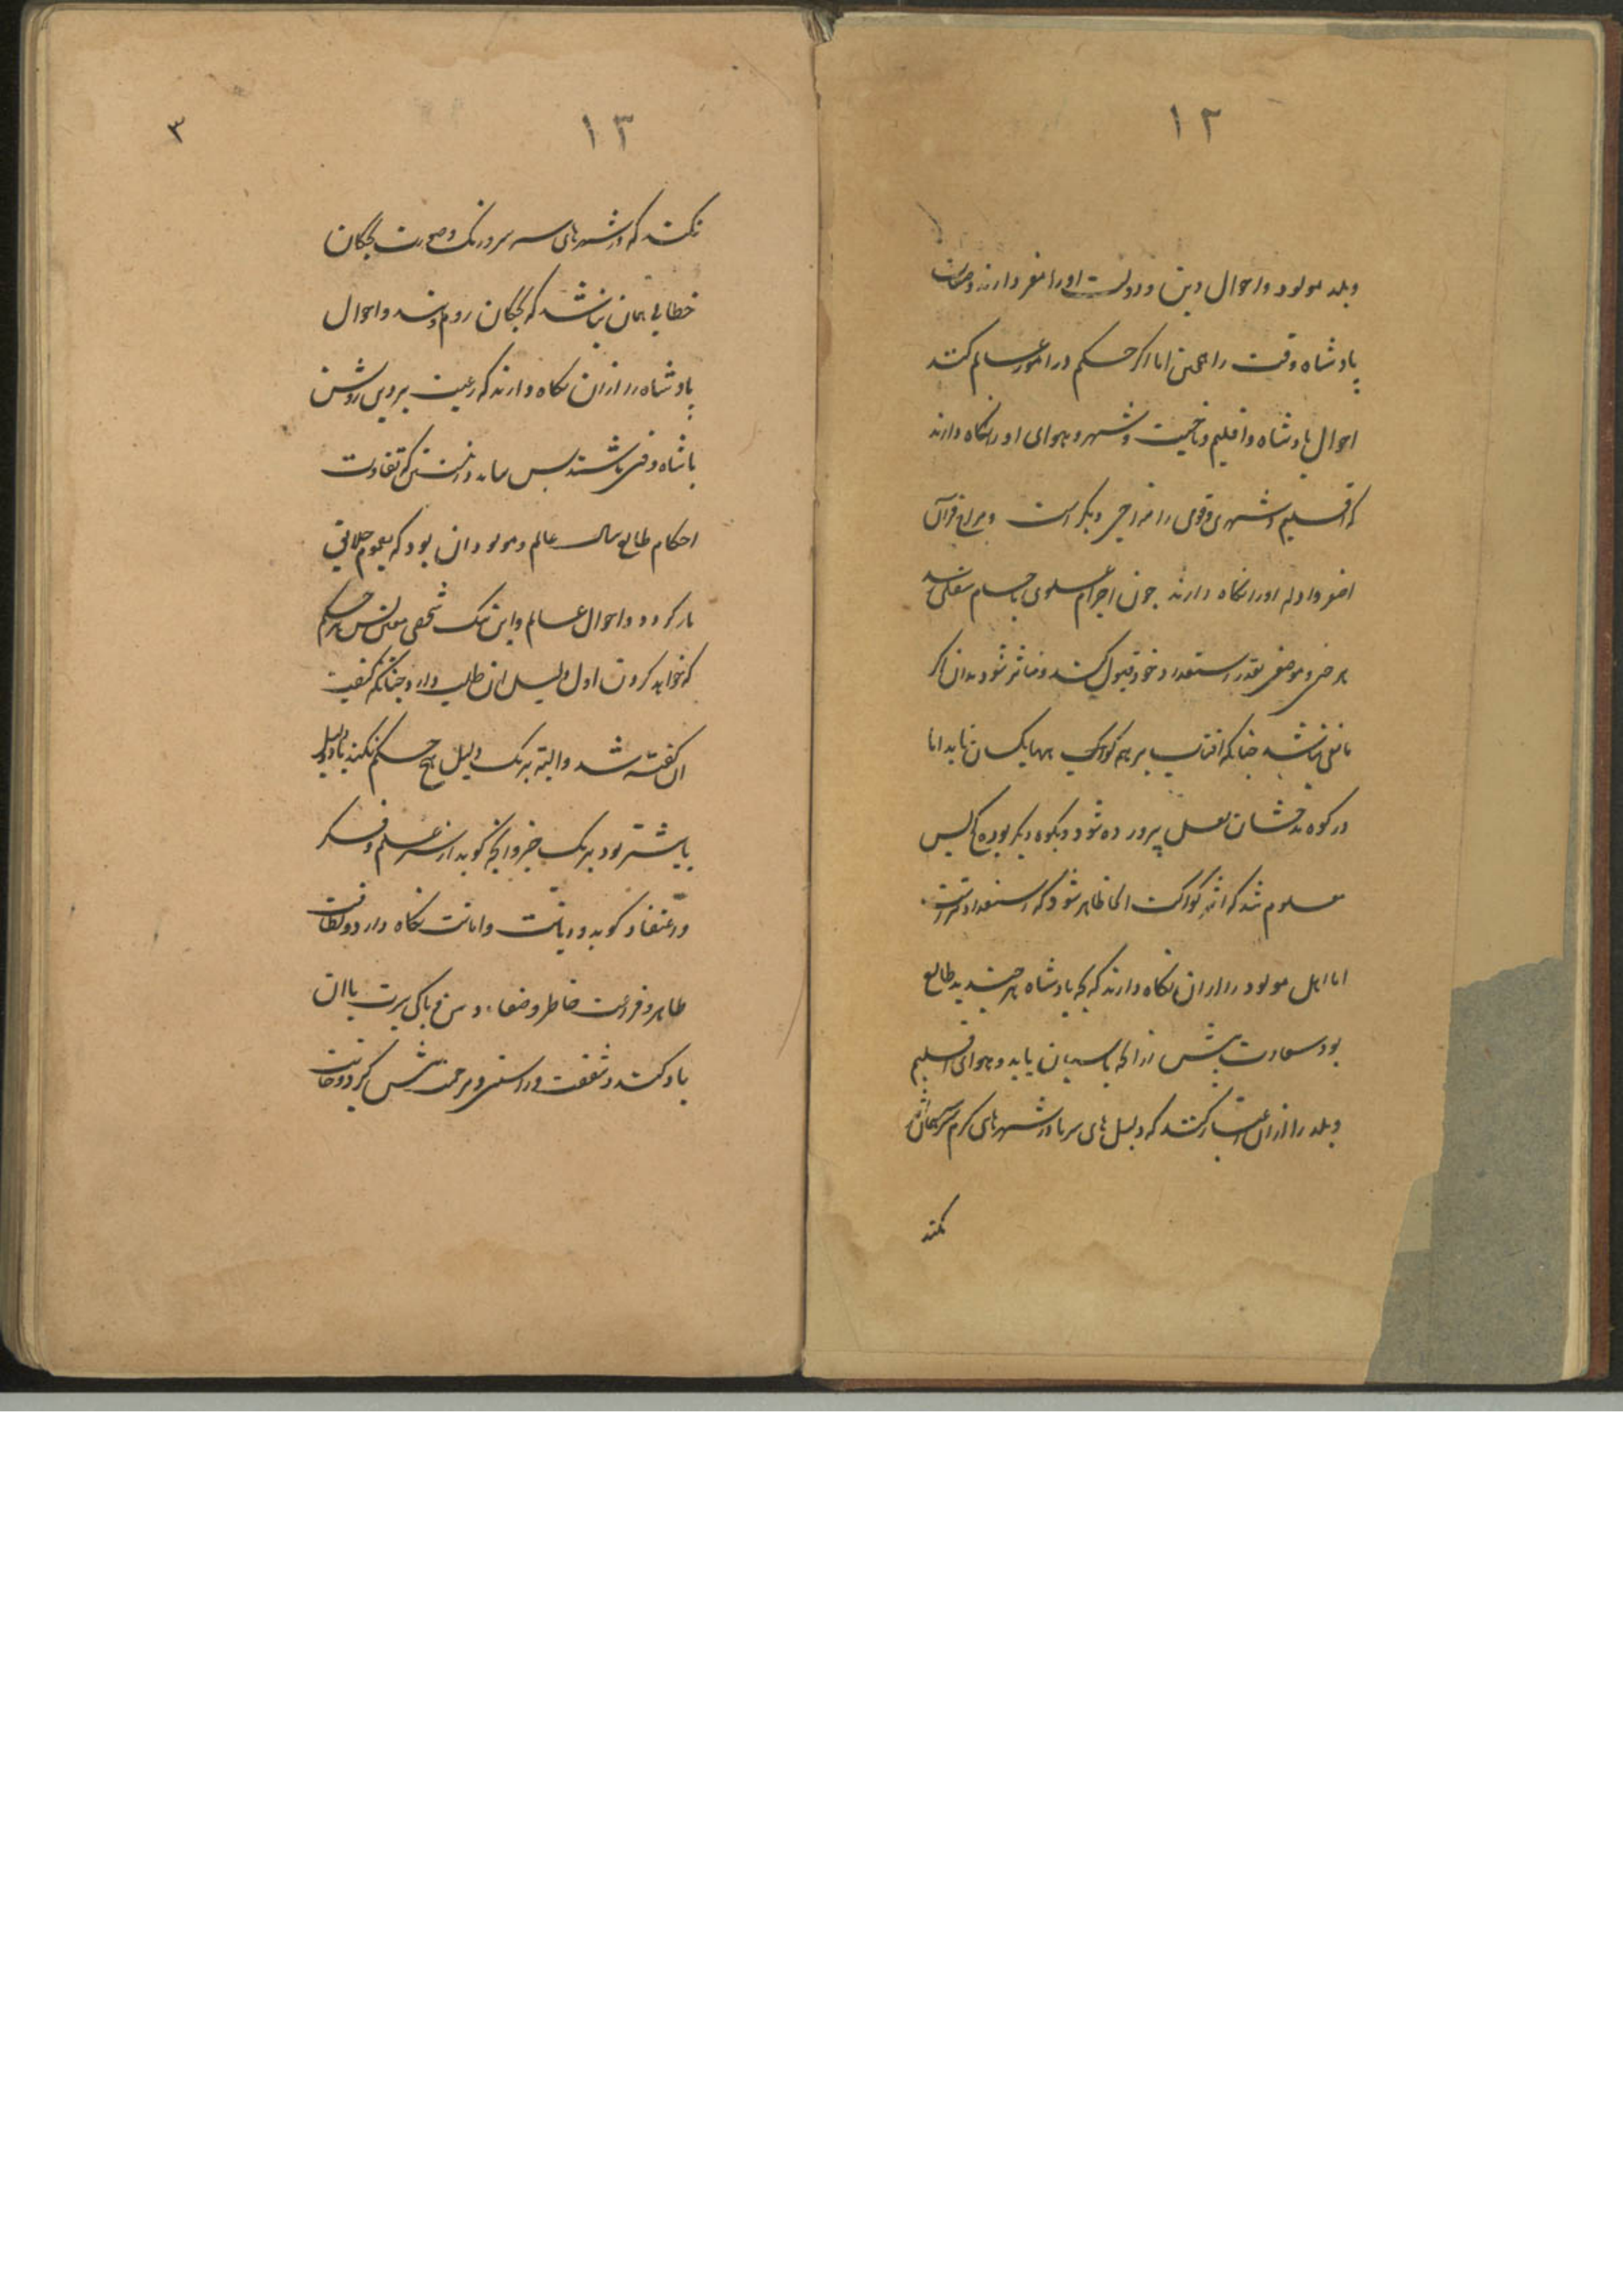 ١٢
وبلد مولود واحوال دین ودولت اورا مقرر دارند وصاحب
پادشاه وقت را همچنین اما اکر حکم در امور عالم کنند
احوال پادشاه واقلیم وناحیت وشهر وهوای اورا نکاه دارند
که اقلیم وشهری وقومی را مزاجی دیکر است
اورا نکاه دارند چون اجرام علوی با جسام سفلی
هر جنس وموضعی بقدر استعداد خود قبول کنند ومتاثر شود بدان اکر
مانعی نباشد چنانکه افتاب بر همه کوهها یکسان تابد اما
در کوه بدخشان لعل پرورده شود وبکوه دیکر بوده پس
معلوم شد که اثر کواکب انجا ظاهر شود که استعداد
اما اهل مولود را از آن نکاه دارند که بچه پادشاه هر چند بد طالع
بود سعادت بیش از بچه پاسبان یابد وهوای اقلیم
وبلد را از آن اعتبار کنند که دلیل های سرما در شهرهای کرم
نکند
١٣
٣
نکند که در شهرهای سرد ورنک وصورت بچکان
خطایی همان نباشد که بچکان روم واحوال
پادشاه را از آن نکاه دارند که رعیت بر دین وروش
پادشاه وقت باشند پس بباید دانستن که تفاوت
احکام طالع سال عالم ومولود آن بود که بعموم خلایق
باز کردد واحوال عالم واین بیک شخص معین پس هر حکم
که خواهد کردن اول دلیل آن طلب دارد چنانکه کیفیت
آن کفته شد والبته بر یک دلیل هیچ حکم نکند تا دو دلیل
یا بیشتر نبود بر یک چیز وانچه کوید از سر علم وفکر
واعتقاد کوید ودیانت وامانت نکاه دارد ولطافت
طاهر وفراغت خاطر وصفاء پاکی سیرت با آن
یاد کند وشفقت وراستی ومرحمت پیش کیرد